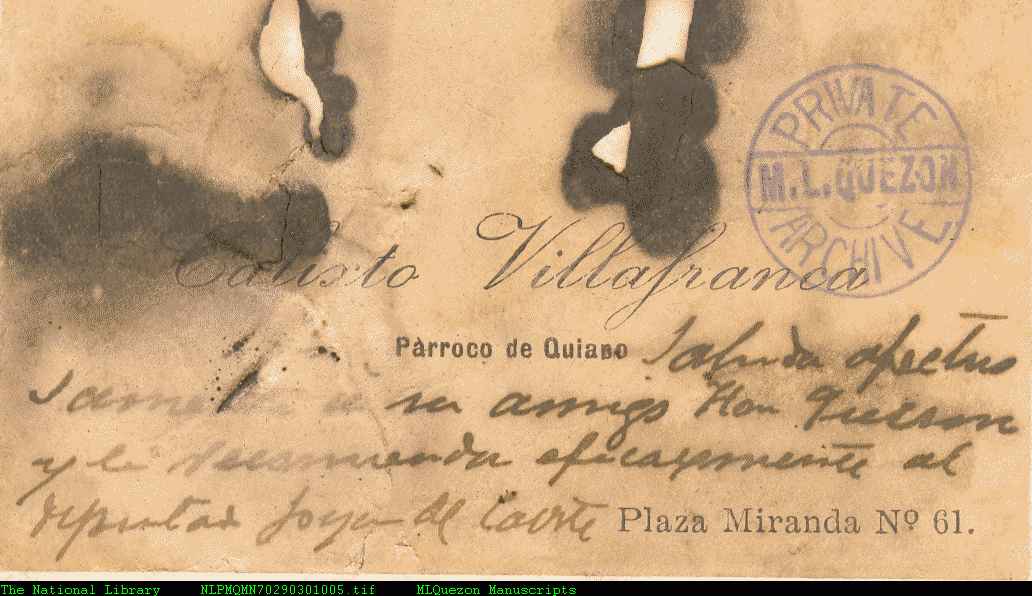 PRIVATE
M.L.QUEZON
ARCHIVE
Calixto Villafranca
Párroco de Quiapo
Saluda afectuo
samente a su amigo Hon Quezon
y le recomienda eficazmente al
diputado Joya de Cavite
Plaza Miranda Nº 61.
The National Library NLPMQMN70290301005.tif MLQuezon Manuscripts